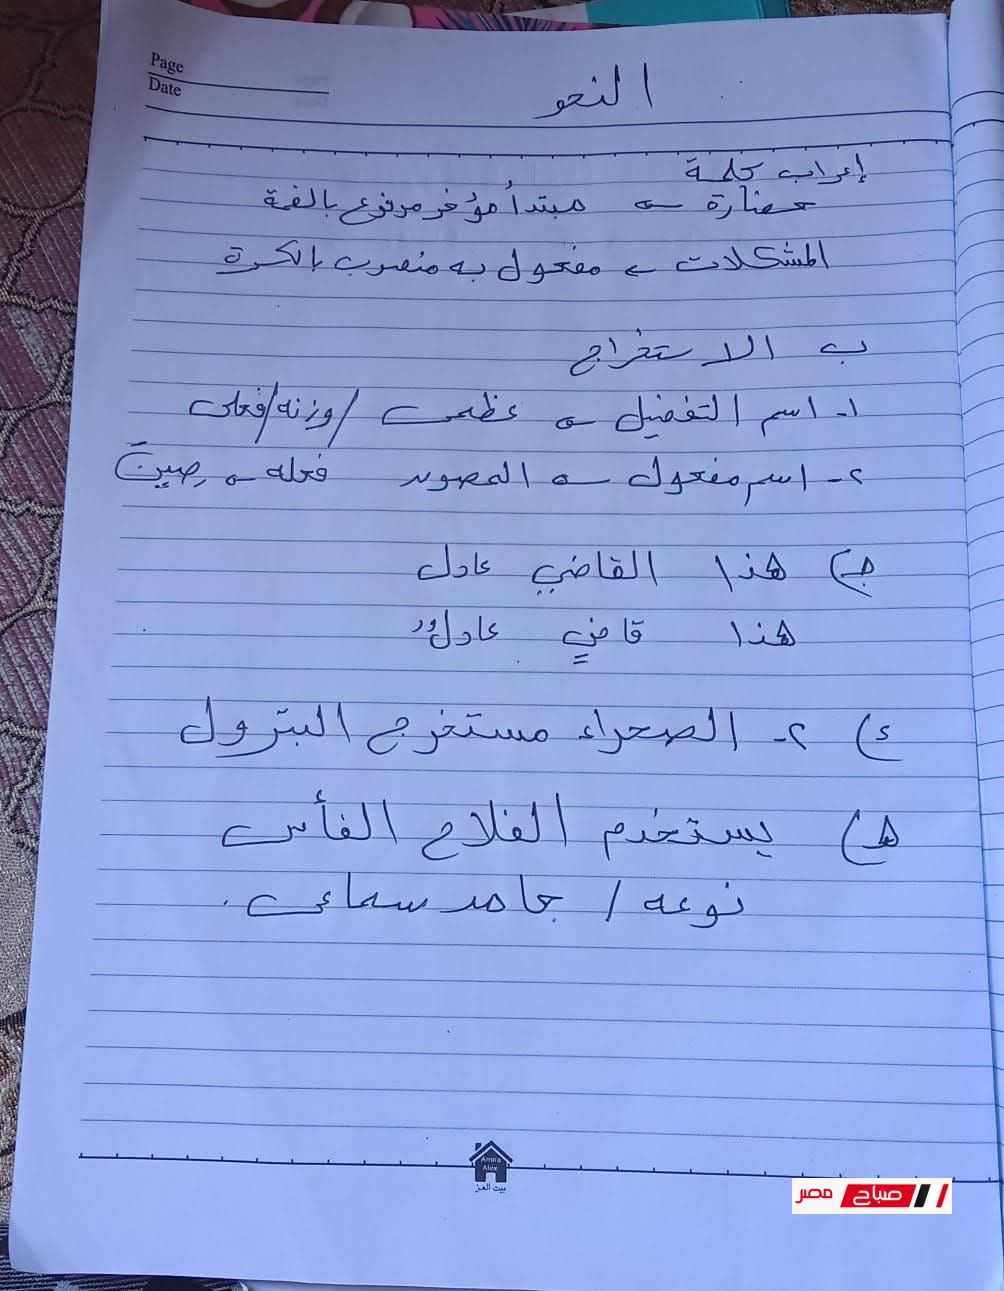 Page
Date
النحو
إعراب كلمة
حضارة ← مبتدأ مؤخر مرفوع بالضمة
المشكلات ← مفعول به منصوب بالكسرة
ب الاستخراج
١- اسم التفضيل ← عظمى / وزنه / فعلى
٢- اسم مفعول ← المصون فعله ← صين
جـ) هذا القاضي عادل
هذا قاضٍ عادلٌ
د) ٢- الصحراء مستخرج البترول
هـ) يستخدم الفلاح الفأس
نوعه / جامد سماعى .
Amira
Alex
بيت العز
صباح مصر